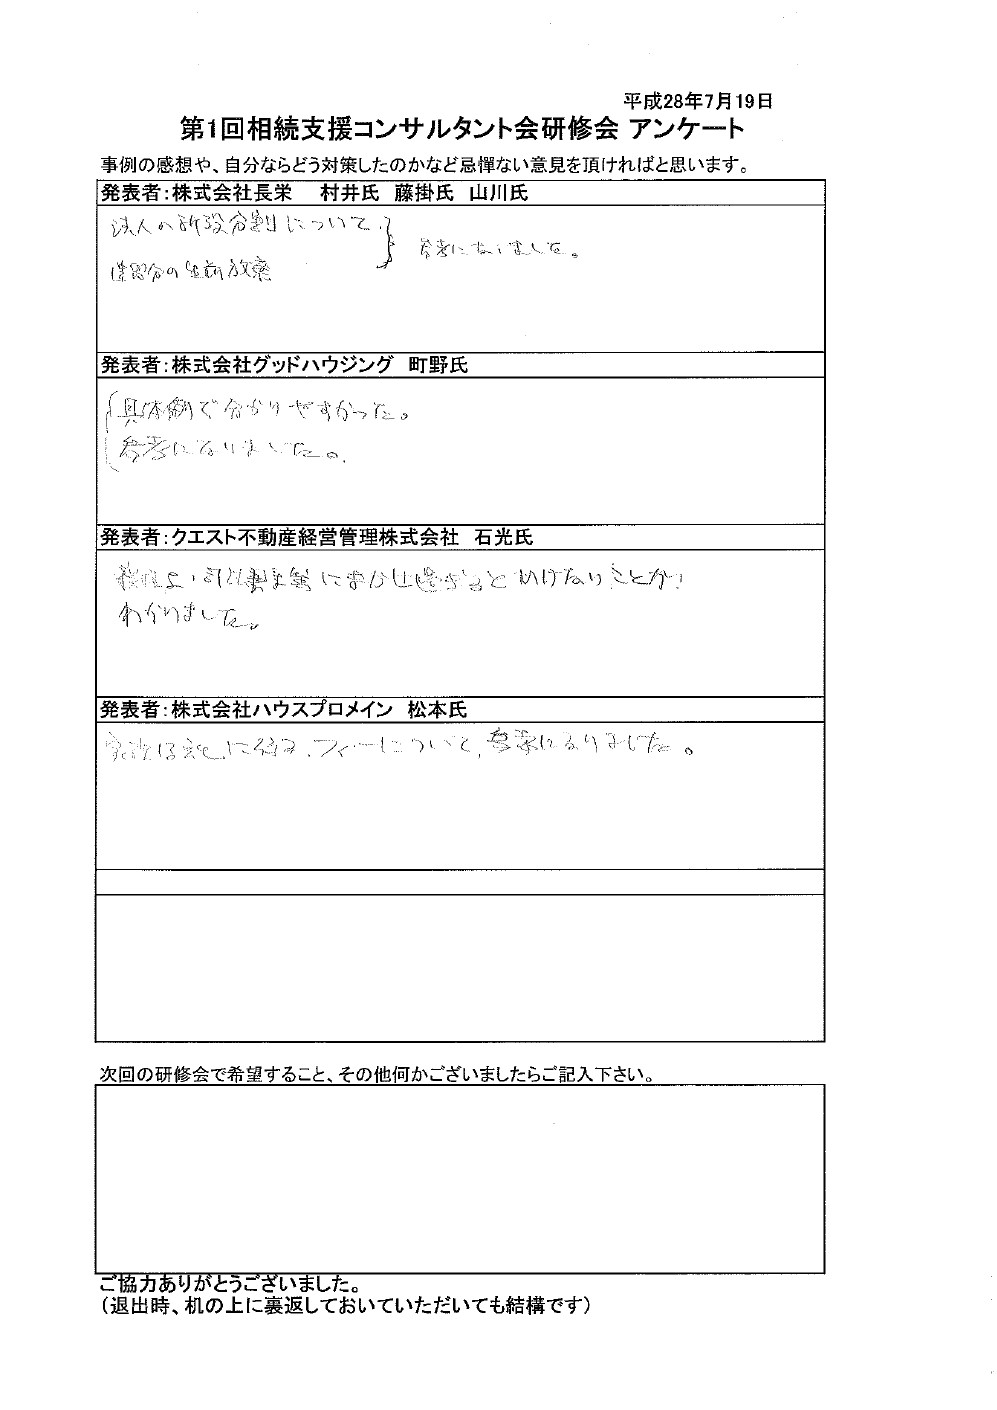 平成28年7月19日
第1回相続支援コンサルタント会研修会 アンケート
事例の感想や、自分ならどう対策したのかなど忌憚ない意見を頂ければと思います。
発表者：株式会社長栄　村井氏　藤掛氏　山川氏
法人の新設分割について
遺留分の生前放棄
参考になりました。
発表者：株式会社グッドハウジング　町野氏
具体例で分かりやすかった。
参考になりました。
発表者：クエスト不動産経営管理株式会社　石光氏
にまかせ過ぎるといけないことが
わかりました。
発表者：株式会社ハウスプロメイン　松本氏
フィーについて、参考になりました。
次回の研修会で希望すること、その他何かございましたらご記入下さい。
ご協力ありがとうございました。
（退出時、机の上に裏返しておいていただいても結構です）